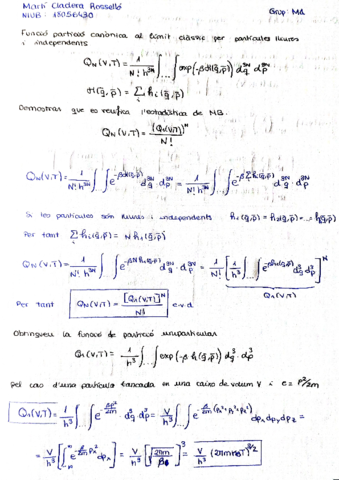 Martí Cladera Rosselló
NIUB: 18056430 Grup: MA
Funció partició canònica al límit clàssic per partícules lliures
i independents
Q_N(V,T) = 1/(N! h^{3N}) ∫...∫ exp(-βH(q̄,p̄)) d^{3N}q d^{3N}p
H(q̄,p̄) = Σ_i h_i(q̄,p̄)
Demostrau que es verifica l'estadística de MB.
Q_N(V,T) = [Q_1(V,T)]^N / N!
Q_N(V,T) = 1/(N! h^{3N}) ∫...∫ e^{-βH(q̄,p̄)} d^{3N}q · d^{3N}p = 1/(N! h^{3N}) ∫...∫ e^{-βΣ_i h_i(q̄,p̄)} d^{3N}q · d^{3N}p
Si les partícules són lliures i independents h_1(q̄,p̄) = h_2(q̄,p̄) = ... = h(q̄,p̄)
Per tant Σ_i h_i(q̄,p̄) = N h_i(q̄,p̄)
Q_N(V,T) = 1/(N! h^{3N}) ∫...∫ e^{-βN h_i(q̄,p̄)} d^{3N}q · d^{3N}p = 1/N! [1/h^3 ∫...∫ e^{-βh(q̄,p̄)} d^3q d^3p]^N
Q_1(V,T)
Per tant Q_N(V,T) = [Q_1(V,T)]^N / N! c.v.d.
Obtinguem la funció de partició uniparticular
Q_1(V,T) = 1/h^3 ∫...∫ exp(-β h(q̄,p̄)) d^3q · d^3p
Pel cas d'una partícula tancada en una caixa de volum V i ε = p^2/2m
Q_1(V,T) = 1/h^3 ∫...∫ e^{-β p^2/2m} · d^3q d^3p = V/h^3 ∫...∫ e^{-β/2m (p_x^2+p_y^2+p_z^2)} dp_x dp_y dp_z =
= V/h^3 [∫_{-∞}^{∞} e^{-β/2m p_x^2} dp_x]^3 = V/h^3 [√(2πm/β)]^3 = V/h^3 (2πmk_BT)^{3/2}